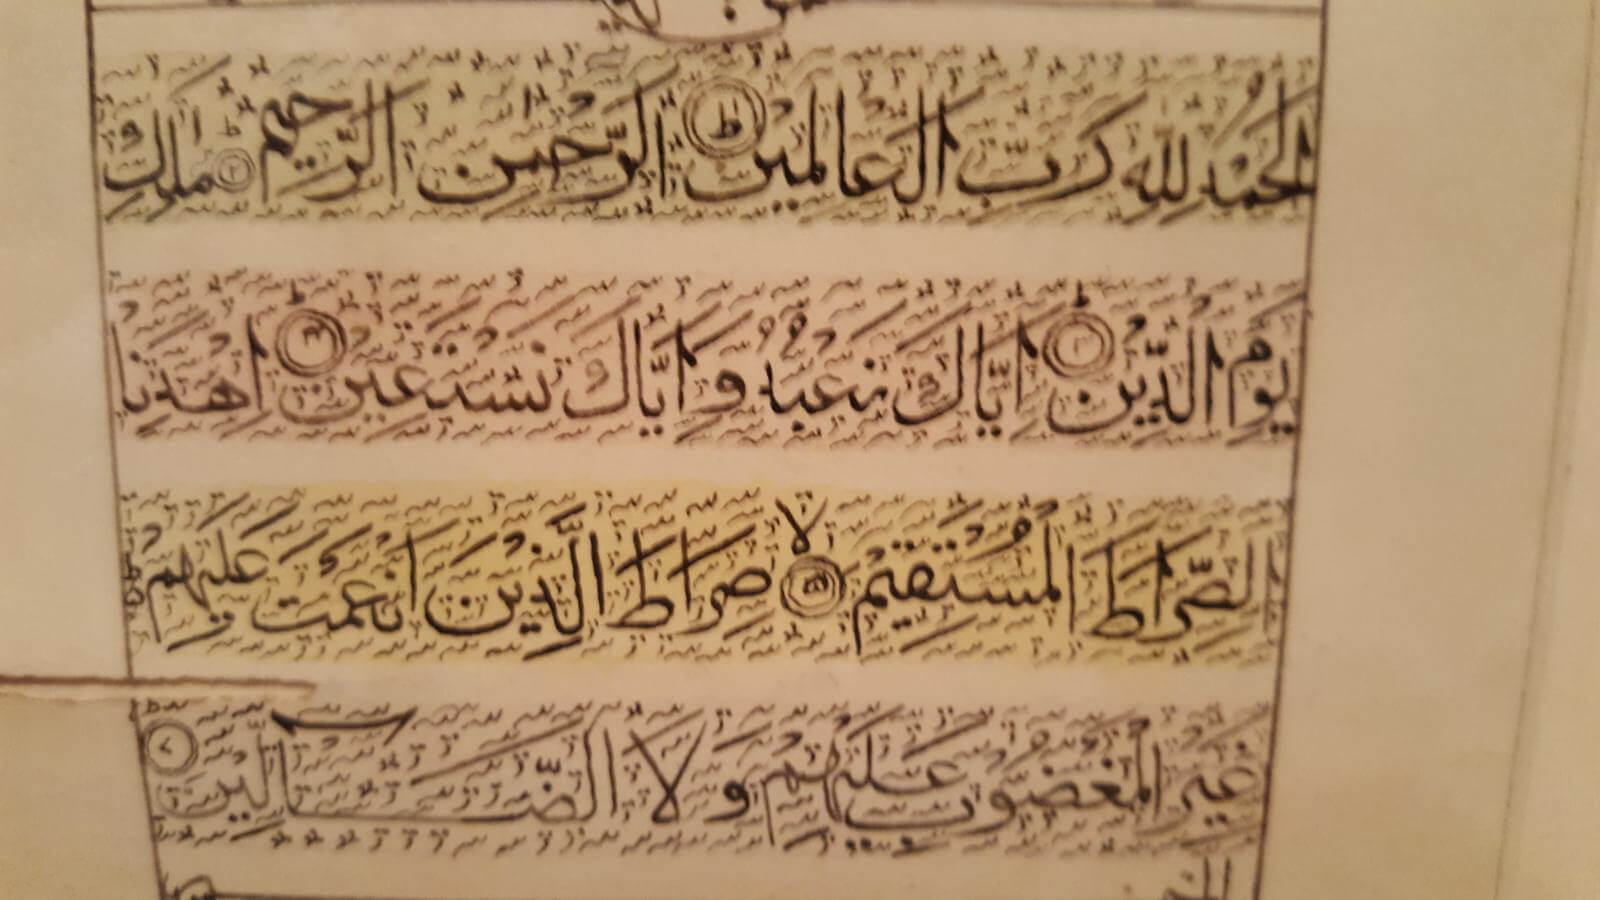 الحمد لله رب العالمين ط الرحمن الرحيم ط ٢ ملك
يوم الدين ط ٣ اياك نعبد و اياك نستعين ط ٤ اهدنا
الصراط المستقيم لا ٥ صراط الذين انعمت عليهم
غير المغضوب عليهم و لا الضالين ط ٧